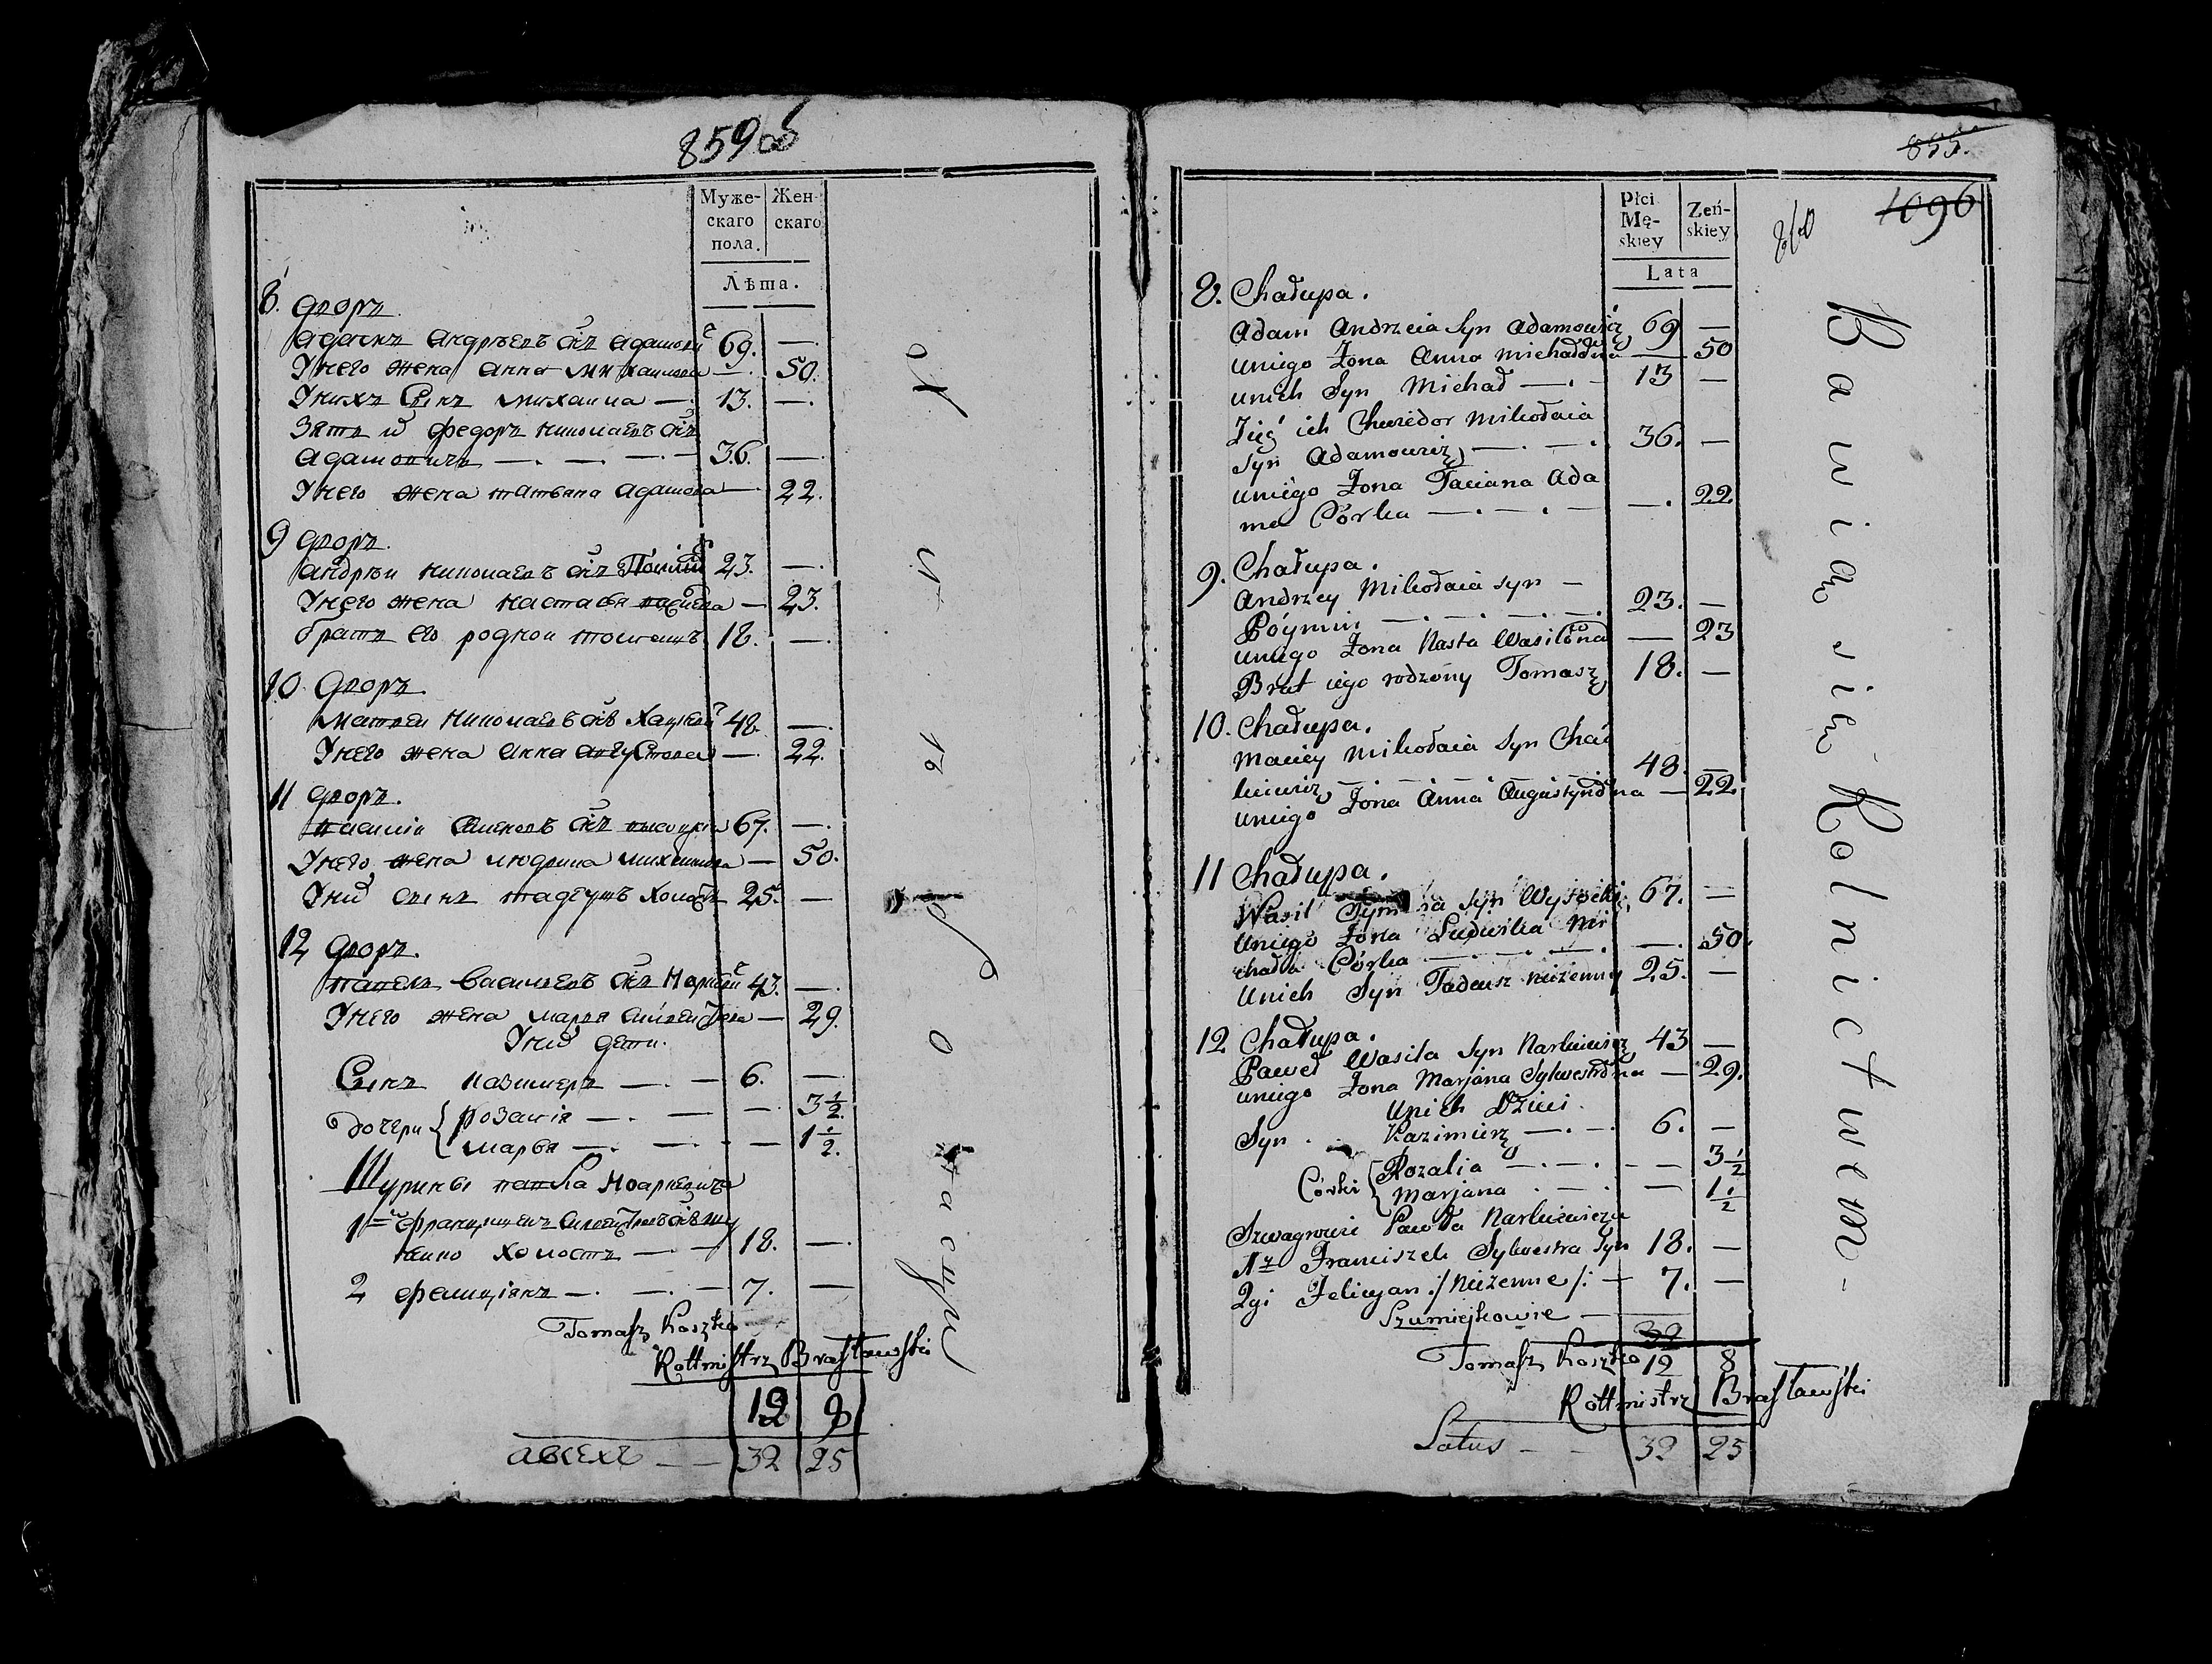 859 об
Муже-
скаго
пола.
Жен-
скаго
Лѣта.
8. Дворъ.
Адамъ Андрѣевъ снъ Адамович 69. —
У него жена Анна Михаилова — 50.
У нихъ Сынъ Михаила — 13. —
Зять и Федоръ Николаевъ снъ
Адамовичъ — . — . — 36. —
У него жена Татьяна Адамова — 22.
9 Дворъ.
Андрѣи Николаевъ снъ 23. —
У него жена Настасья — 23.
братъ его роднои Томашъ. 18. —
10 Дворъ.
Матвеи Николаевъ снъ 48. —
У него жена Анна — 22.
11 Дворъ.
снъ 67. —
У него жена Людвика Михаилова — 50.
У них сынъ Тадеушъ Холостъ 25. —
12 Дворъ.
Павелъ Васильевъ снъ 43. —
У него жена Марья — 29.
У них дети.
Сынъ Казимеръ — . — 6. —
Дочери { Розалія — . — — 3 1/2.
Марья — . — — 1 1/2.
Шурины Павла
1й Францишекъ
Холостъ — — 18. —
2 Фелиціянъ — . — . — 7. —
Tomasz Koszko
Rottmistrz Brasławski
12 9
32 25
855.
1096
860
Płci
Mę-
skiey
Zeń-
skiey
Lata
8. Chałupa.
Adam Andrzeia Syn Adamowicz 69 —
uniego Żona Anna Michałówna — 50
unich Syn Michał — . — 13 —
Zięć ich Chwiedor Mikołaia
Syn Adamowicz — . — . 36. —
uniego Żona Taciana Ada
ma Córka — . — . — — . 22
9. Chałupa.
Andrzey Mikołaia Syn —
— . — . — . 23. —
uniego Żona Nasta Wasilówna — 23
Brat iego rodzony Tomasz 18. —
10. Chałupa.
Maciey Mikołaia Syn
48. —
uniego Żona Anna Augustynówna — 22.
11 Chałupa.
Wasil Syn Wysocki 67. —
Uniego Żona Ludwika Mi
chała Córka — . — . — . — . 50.
Unich Syn Tadeusz nieżenny 25. —
12 Chałupa.
Paweł Wasila Syn Narkiewicz 43 —
uniego Żona Marjana Sylwestrówna — 29.
Unich Dzieci.
Syn . . Kazimierz — . — . 6. —
Córki { Rozalia — . — . — — 3 1/2
Marjana . — . — — 1 1/2
Szwagrowie Pawła Narkiewicza
1y Franciszek Sylwestra Syn 18. —
2gi Felicyan :/nieżenne/: — 7. —
Szumieykowie —
32
12 8
Tomasz Koszko
Rottmistrz Brasławski
Latus — — 32 25
Bawią się Rolnictwem -